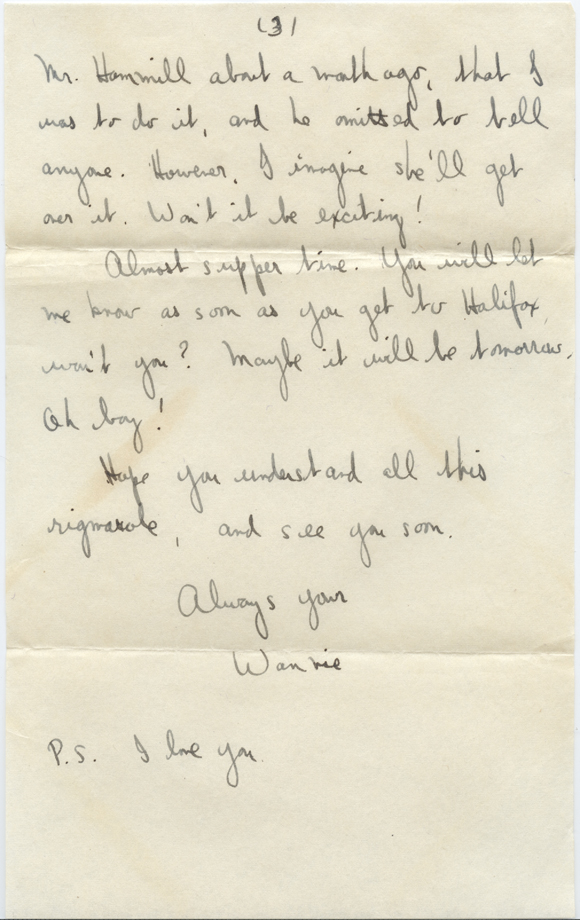 (3)
Mr. Hammill about a month ago, that I
was to do it, and he omitted to tell
anyone. However, I imagine she'll get
over it. Won't it be exciting!
Almost supper time. You will let
me know as soon as you get to Halifax,
won't you? Maybe it will be tomorrow.
Oh boy!
Hope you understand all this
rigmarole, and see you soon.
Always your
Wannie
P.S. I love you.